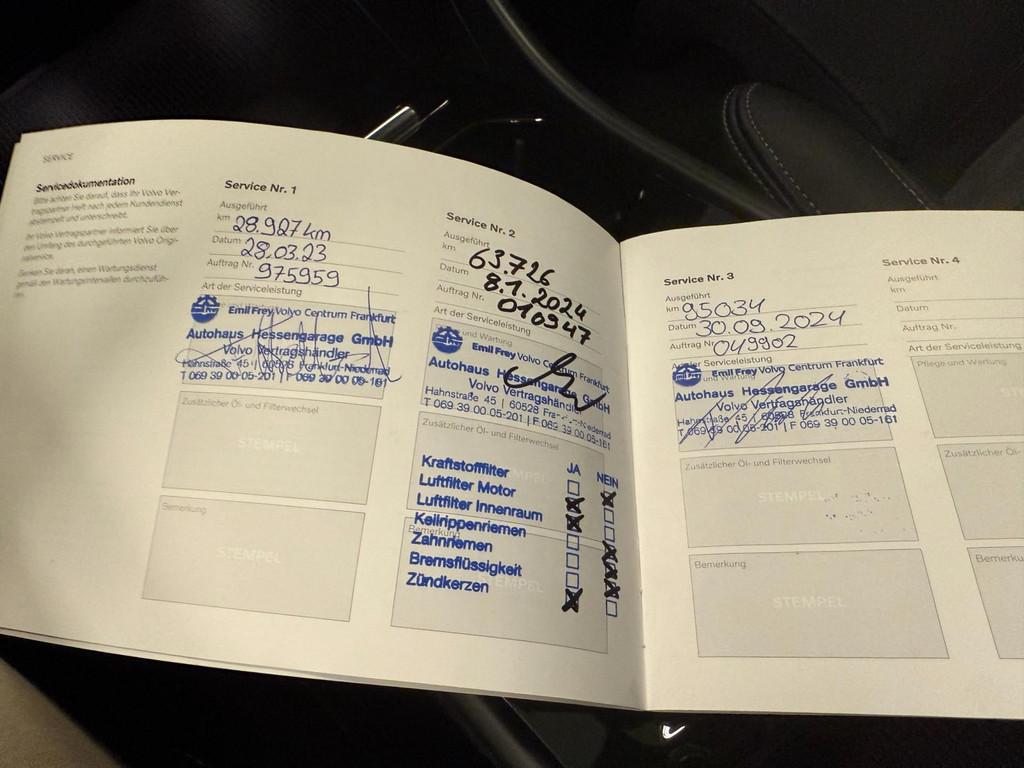 SERVICE
Servicedokumentation
Bitte achten Sie darauf, dass Ihr Volvo Ver-
tragspartner Heft nach jedem Kundendienst
abstempelt und unterschreibt.
Ihr Volvo Vertragspartner informiert Sie über
den Umfang des durchgeführten Volvo Origi-
nalservice.
Denken Sie daran, einen Wartungsdienst
gemäß den Wartungsintervallen durchzufüh-
ren.
Service Nr. 1
Ausgeführt
km 28.927 km
Datum 28.03.23
Auftrag Nr. 975959
Art der Serviceleistung
Emil Frey Volvo Centrum Frankfurt
Autohaus Hessengarage GmbH
Volvo Vertragshändler
Hahnstraße 45 | 60528 Frankfurt-Niederrad
T 069 39 00 05-201 | F 069 39 00 05-161
Zusätzlicher Öl- und Filterwechsel
STEMPEL
Bemerkung
STEMPEL
Service Nr. 2
Ausgeführt
km 63.726
Datum 8.1.2024
Auftrag Nr. 010947
Art der Serviceleistung
und Wartung
Emil Frey Volvo Centrum Frankfurt
Autohaus Hessengarage GmbH
Volvo Vertragshändler
Hahnstraße 45 | 60528 Frankfurt-Niederrad
T 069 39 00 05-201 | F 069 39 00 05-161
Zusätzlicher Öl- und Filterwechsel
JA NEIN
Kraftstofffilter
Luftfilter Motor
Luftfilter Innenraum
Keilrippenriemen
Bemerkung
Zahnriemen
Bremsflüssigkeit
Zündkerzen
STEMPEL
Service Nr. 3
Ausgeführt
km 95034
Datum 30.09.2024
Auftrag Nr. 049902
Art der Serviceleistung
und Wartung
Emil Frey Volvo Centrum Frankfurt
Autohaus Hessengarage GmbH
Volvo Vertragshändler
Hahnstraße 45 | 60528 Frankfurt-Niederrad
T 069 39 00 05-201 | F 069 39 00 05-161
Zusätzlicher Öl- und Filterwechsel
STEMPEL
Bemerkung
STEMPEL
Service Nr. 4
Ausgeführt
km
Datum
Auftrag Nr.
Art der Serviceleistung
Pflege und Wartung
Zusätzlicher Öl-
Bemerku